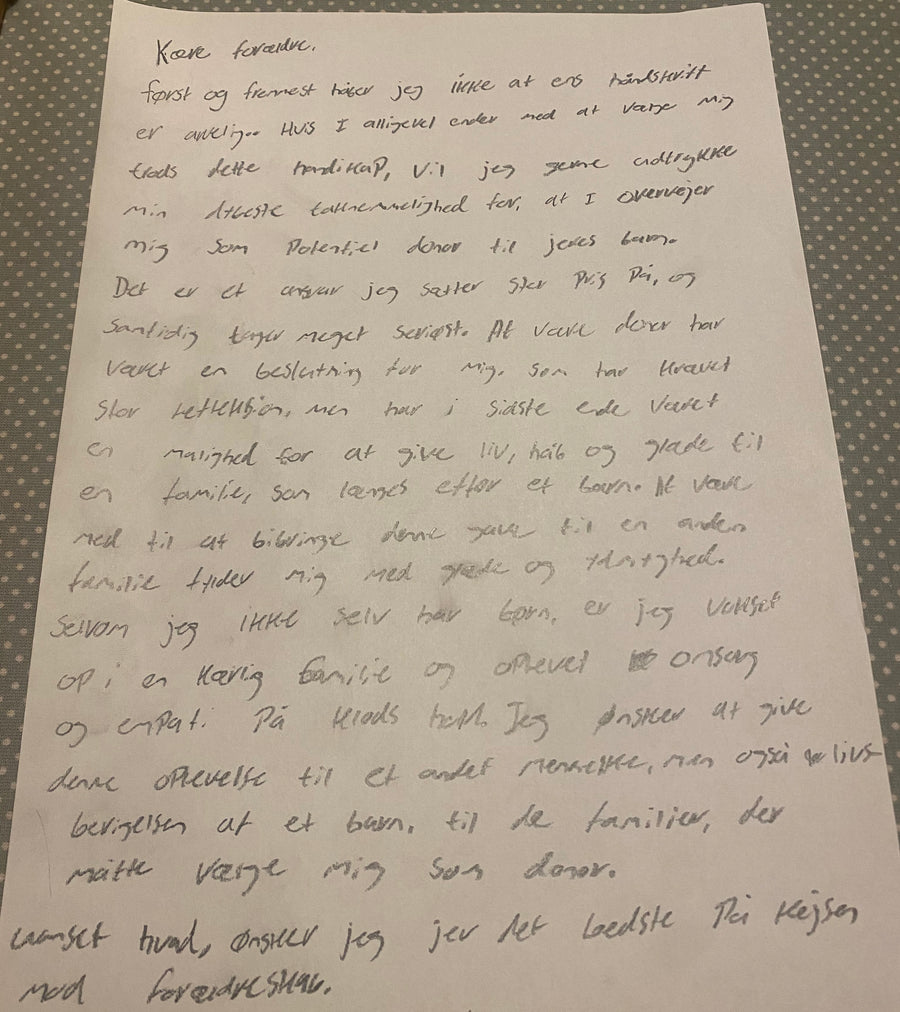 Kære forældre.
først og fremmest håber jeg ikke at ens håndskrift
er arvelig.. Hvis I alligevel ender med at vælge mig
trods dette handikap, vil jeg gerne udtrykke
min dybeste taknemmelighed for, at I overvejer
mig som Potentiel donor til jeres barn.
Det er et ansvar jeg sætter stor Pris På, og
samtidig tager meget seriøst. At være donor har
været en beslutning for mig, som har krævet
stor refleksion, men har i sidste ende været
en mulighed for at give liv, håb og glæde til
en familie, som længes efter et barn. At være
med til at bibringe denne gave til en anden
familie fylder mig med glæde og ydmyghed.
Selvom jeg ikke selv har børn, er jeg vokset
op i en kærlig familie og oplevet omsorg
og empati På klods hold. Jeg ønsker at give
denne oplevelse til et andet menneske, men også livs-
berigelsen af et barn, til de familier, der
måtte vælge mig som donor.
uanset hvad, ønsker jeg jer det bedste På rejsen
mod forældreskab.